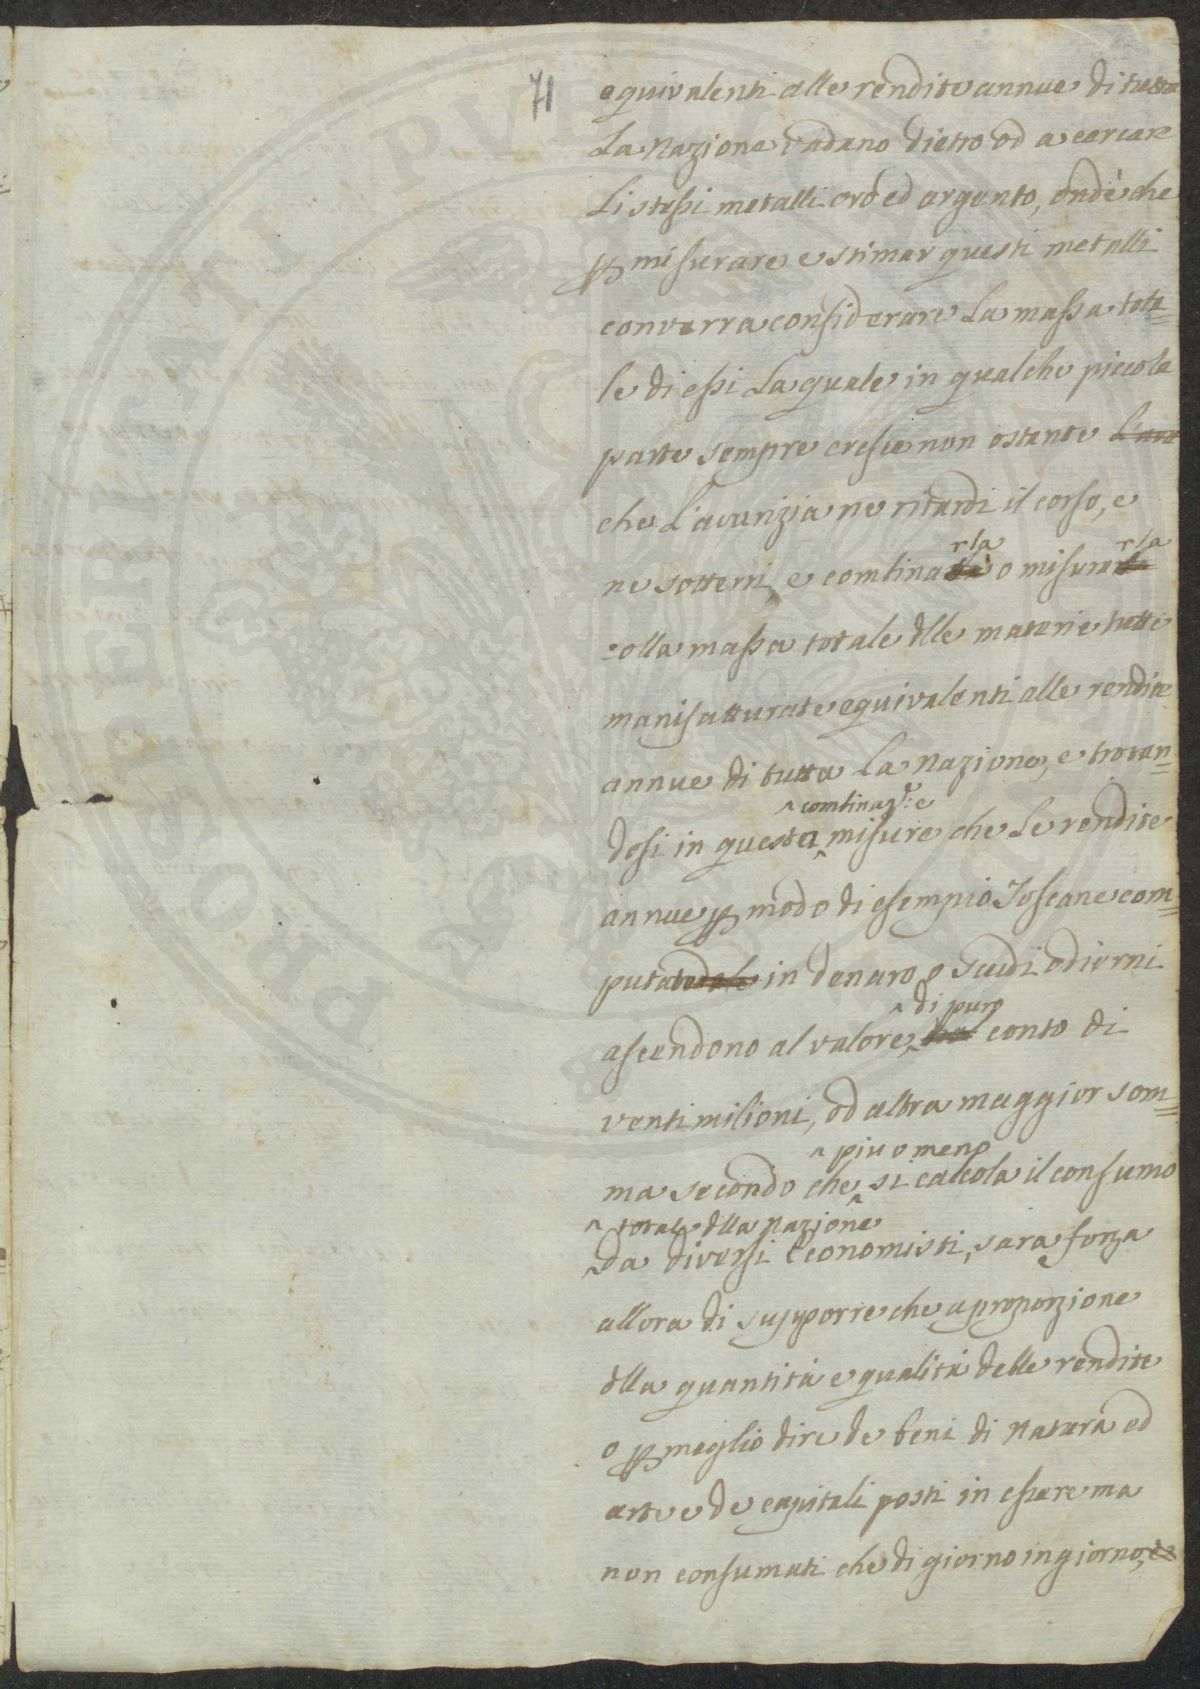 71
equivalenti alle rendite annue di tutta
La Nazione vadano dietro od a cercare
Li stessi metalli oro ed argento, ond'è che
p misurare e stimar questi metalli
converra considerare La massa tota=
le di essi La quale in qualche piccola
parte sempre cresce non ostante L'ava
che L'avarizia ne ritardi il corso, e
rla rla
ne sotterri, e combina o misura
colla massa totale dlle materie tutte
manifatturate equivalenti alle rendite
annue di tutta La Nazione, e trovan=
^ combinaz.e e
dosi in questa misure che Le rendite
annue p modo di esempio Toscane com=
putate in denaro o scudi odierni
^ di puro
ascendono al valore, conto di
venti milioni, od altra maggior som=
^ piu o meno
ma secondo che si calcola il consumo
^ totale dlla Nazione
da diversi Economisti, sara forza
allora di supporre che a proporzione
dlla quantità e qualità delle rendite
o p meglio dire de beni di Natura ed
arte e de capitali posti in essere ma
non consumati che di giorno in giorno, e